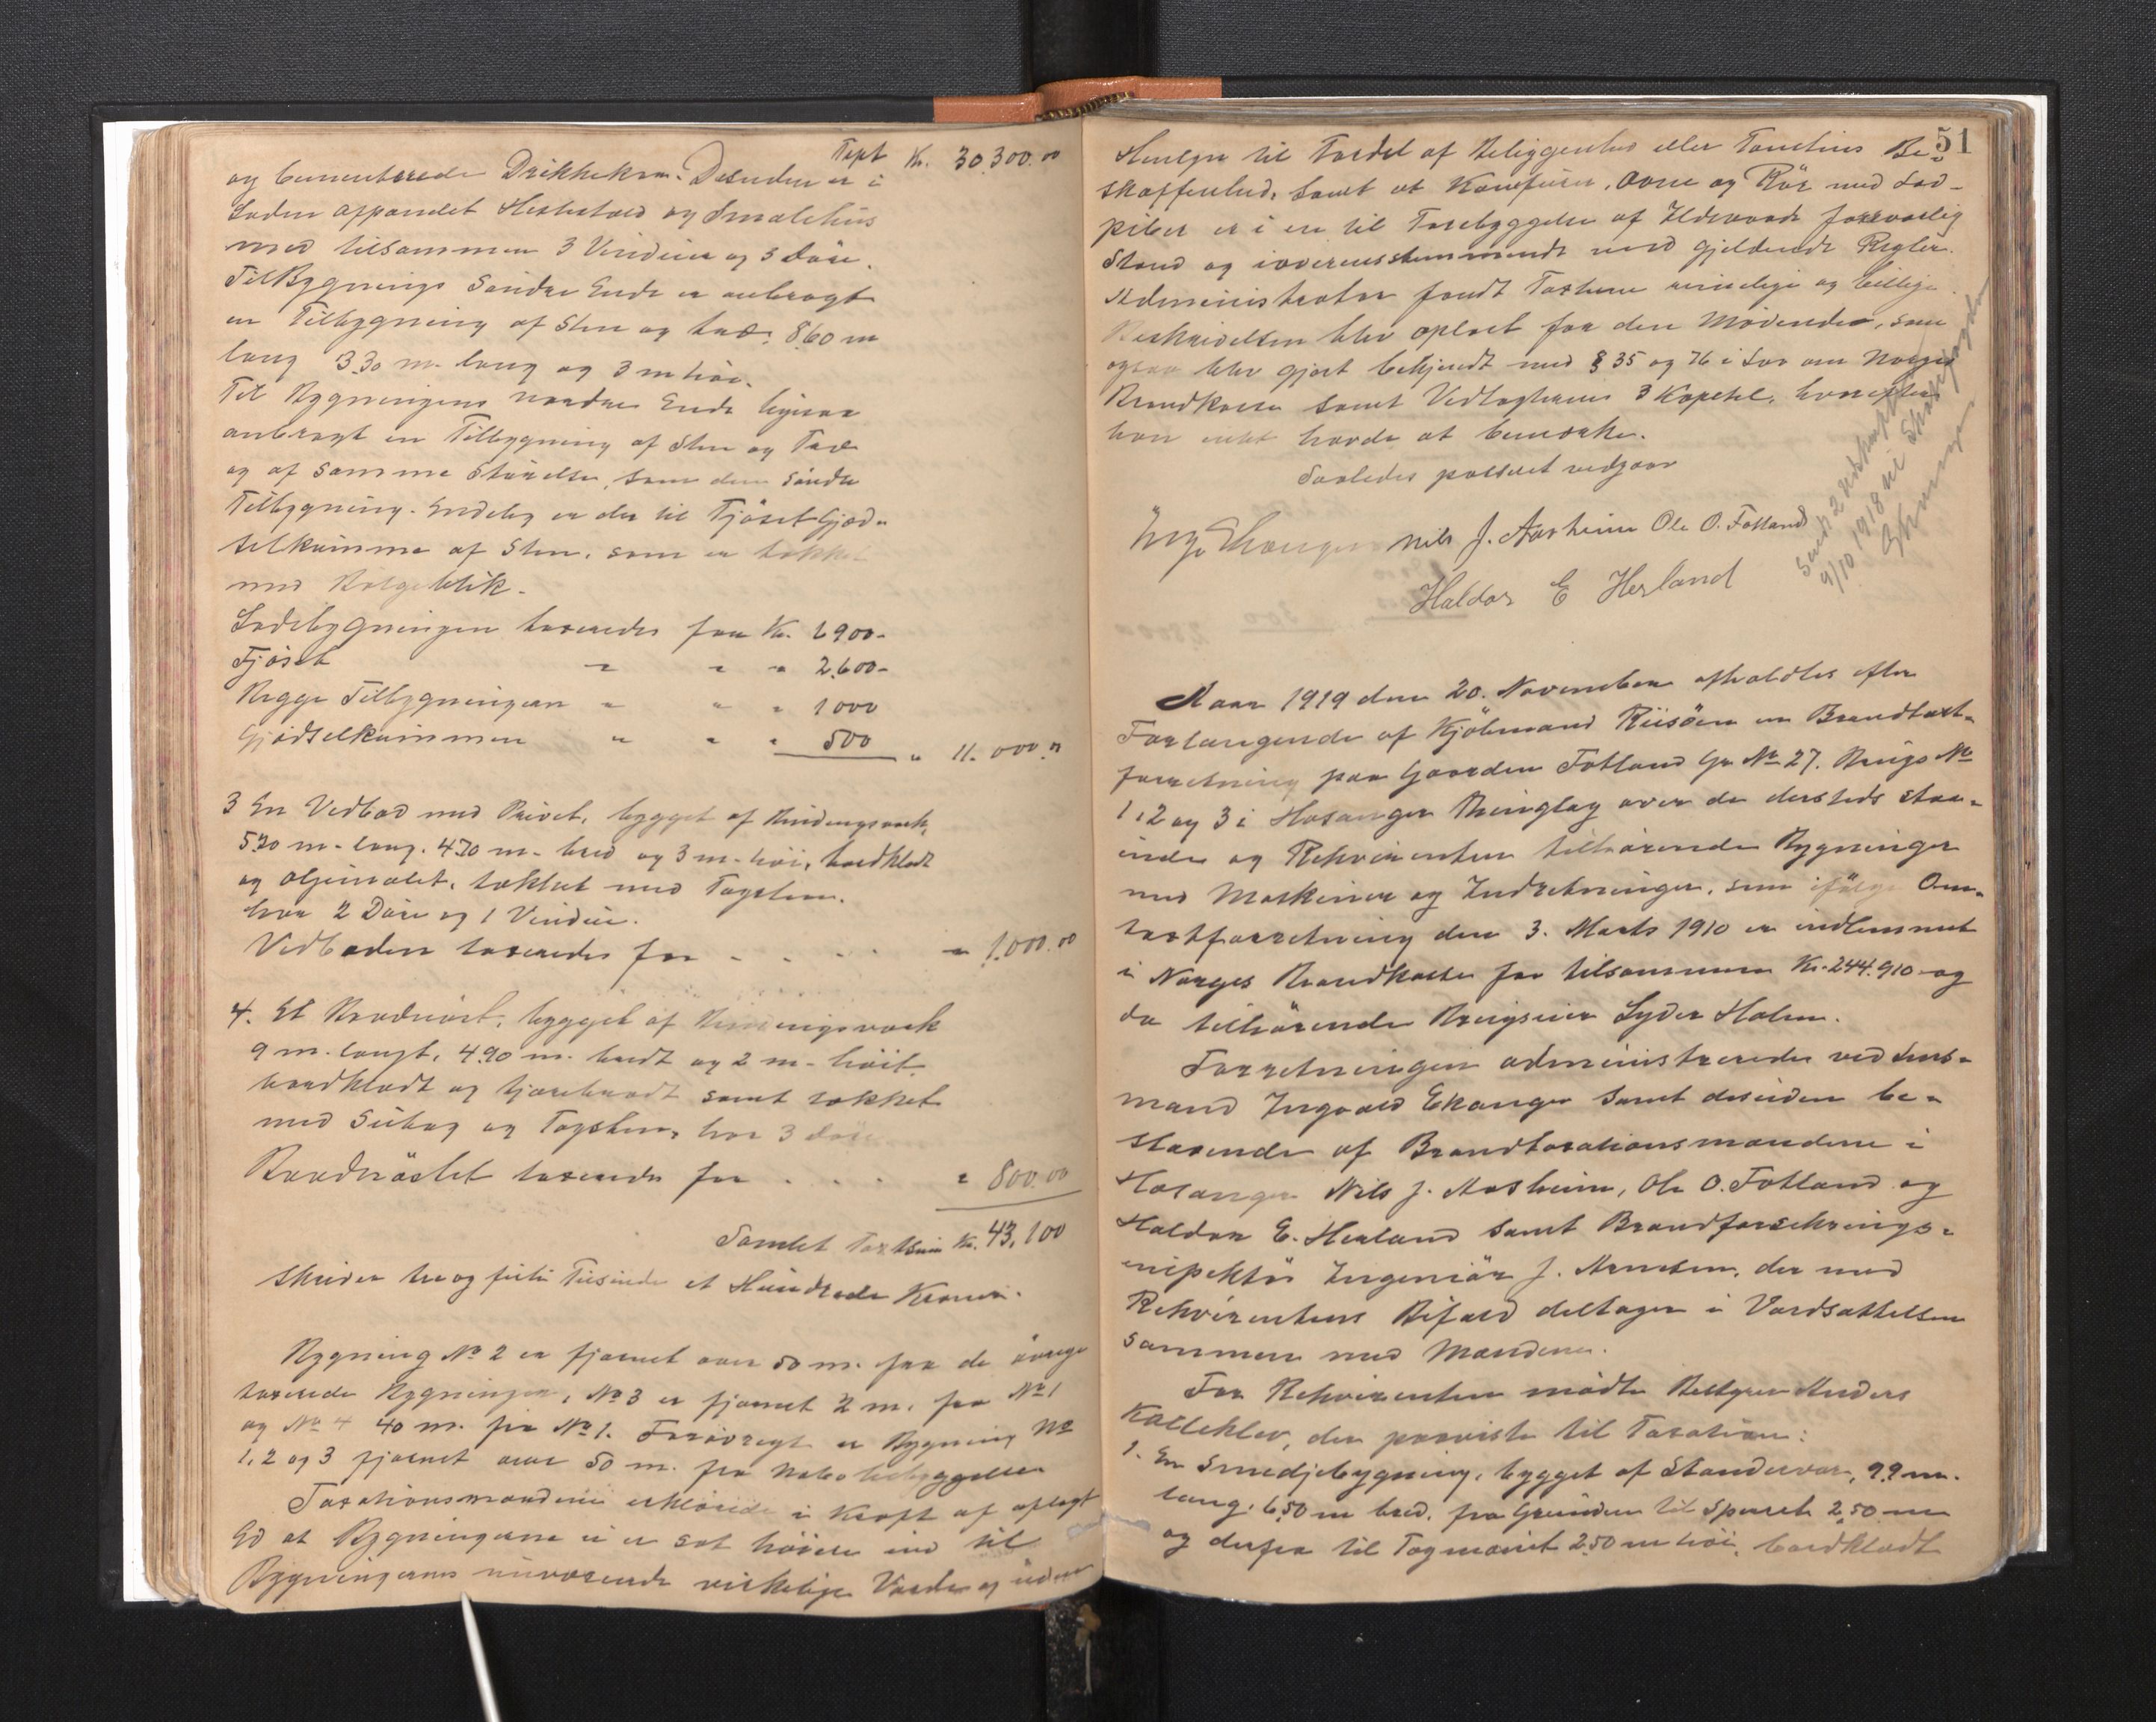 Tapt Kr. 30.300.00
og cementerede Drikkekar. Desuden er i
Laden oppandet Hestestald og Smalehus
med tilsammen 3 Vinduer og 3 Døre.
Til Bygnings søndre Ende er anbragt
en Tilbygning af Sten og træ; 8.60 m
lang 3.30 m. lang og 3 m høi.
Til Bygningens nordre Ende ligesaa
anbragt en Tilbygning af Sten og Træ
og af samme Størrelse, som den søndre
Tilbygning. Endelig er der til Fjöset Gjød-
selkumme af Sten, som er tækket
med Bølgeblik.
Ladebygningen taxeredes for Kr. 6900-
Fjöset " " " 2.600-
Begge Tilbygningerne " " " 1000
Gjødselkummen " " " 500 " 11.000.00
3 En Vedbod med Privet, bygget af Bindingsværk,
5.20 m. lang. 4.70 m. bred og 3 m. høi, bordklædt
og oljemalet, tækket med Tagsten.
har 2 Døre og 1 Vindue.
Vedboden taxeredes for - . . . " 1.000.00
4. Et Baadnöst, bygget af Bindingsværk
9 m. langt, 4.90 m. bredt og 2 m. høit.
bordklædt og tjærebredt samt tækket
med Sutag og Tagsten, har 3 Døre
Baadnöstet taxeredes for . . . . " 800.00
Samlet Taxtsum Kr. 43,100
Skriver tre og førti Tusinde et Hundrede Kroner.
Bygning No 2 er fjernet over 50 m. fra de øvrige
taxerede Bygninger, No 3 er fjernet 2 m. fra No 1
og No 4 40 m. fra No 1. Forøvrigt er Bygning No
1, 2 og 3 fjernet over 50 m. fra Nabobebyggelse
Taxationsmændene erklærede i Kraft af aflagt
Ed at Bygningerne ei er sat høiere end til
Bygningernes nuværende virkelige Værdi og uden
51
Hensyn til Fordel af Beliggenhed eller Tomtens Be-
skaffenhed, samt at Komfurer, Ovne og Rör med Lod-
piber er i en til Forebyggelse af Ildsvaade forsvarlig
Stand og i overensstemmende med gjeldende Regler.
Administrator fandt Taxterne rimelige og billige.
Beskrivelsen blev oplæst for den Mødende, som
ogsaa blev gjort bekjendt med § 35 og 76 i Lov om Norges
Brandkasse samt Vedtægternes 3 Kapitel, hvorefter
han intet havde at bemærke.
Saaledes passeret vedgaar
Nils J. Aasheim Ole O. Fotland
Haldor E Herland
Sendt 2 Udskrifter
9/10 1918 til
Aar 1919 den 20. November afholdtes efter
Forlangende af Kjöbmand Riisöen en Brandtaxt-
forretning paa Gaarden Fotland Gr. No 27. Brugs No
1, 2 og 3 i Hosanger Thinglag over de dersteds staa-
ende og Rekvirenten tilhørende Bygninger
med Maskiner og Indretninger, som ifølge Om-
taxtforretning den 3. Marts 1910 er indlemmet
i Norges Brandkasse for tilsammen Kr. 244.910 og
da tilhørende Brugseier Lyder Holm.
Forretningen administreredes ved Lens-
mand Ingvald Ekanger samt desuden be-
staaende af Brandtaxationsmændene i
Hosanger Nils J. Aasheim, Ole O. Fotland og
Haldor E. Herland samt Brandforsikrings-
inspektør Ingeniör J. Arnesen, der med
Rekvirentens Bifald deltager i Værdsættelsen
sammen med Mændene.
For Rekvirenten mødte Bestyrer Anders
Kalleklev, der paaviste til Taxation:
1. En Smedjebygning, bygget af Standerver, 9.9 m.
lang, 6.50 m bred, fra Grunden til Sperret 2.50 m
og derfra til Tagmønet 2.50 m høi, bordklædt